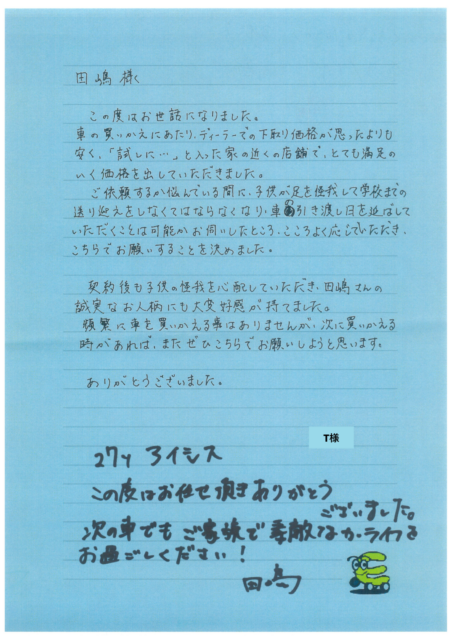 田嶋 様
この度はお世話になりました。
車の買いかえにあたり、ディーラーでの下取り価格が思ったよりも
安く、「試しに…」と入った家の近くの店舗で、とても満足の
いく価格を出していただきました。
ご依頼するか悩んでいる間に、子供が足を怪我して学校までの
送り迎えをしなくてはならなくなり、車の引き渡し日を延ばして
いただくことは可能かお伺いしたところ、こころよく応じていただき、
こちらでお願いすることを決めました。
契約後も子供の怪我を心配していただき、田嶋さんの
誠実なお人柄にも大変好感が持てました。
頻繁に車を買いかえる事はありませんが、次に買いかえる
時があれば、またぜひこちらでお願いしようと思います。
ありがとうございました。
T様
27y アイシス
この度はお任せ頂きありがとう
ございました。
次の車でも ご家族で素敵なカーライフを
お過ごしください！
田嶋